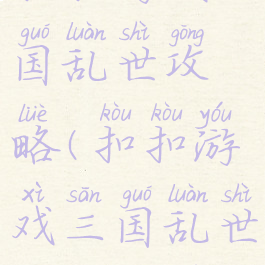 guó luàn shì gōng
国乱世攻
lüè kòu kòu yóu
略(扣扣游
xì sān guó luàn shì
戏三国乱世